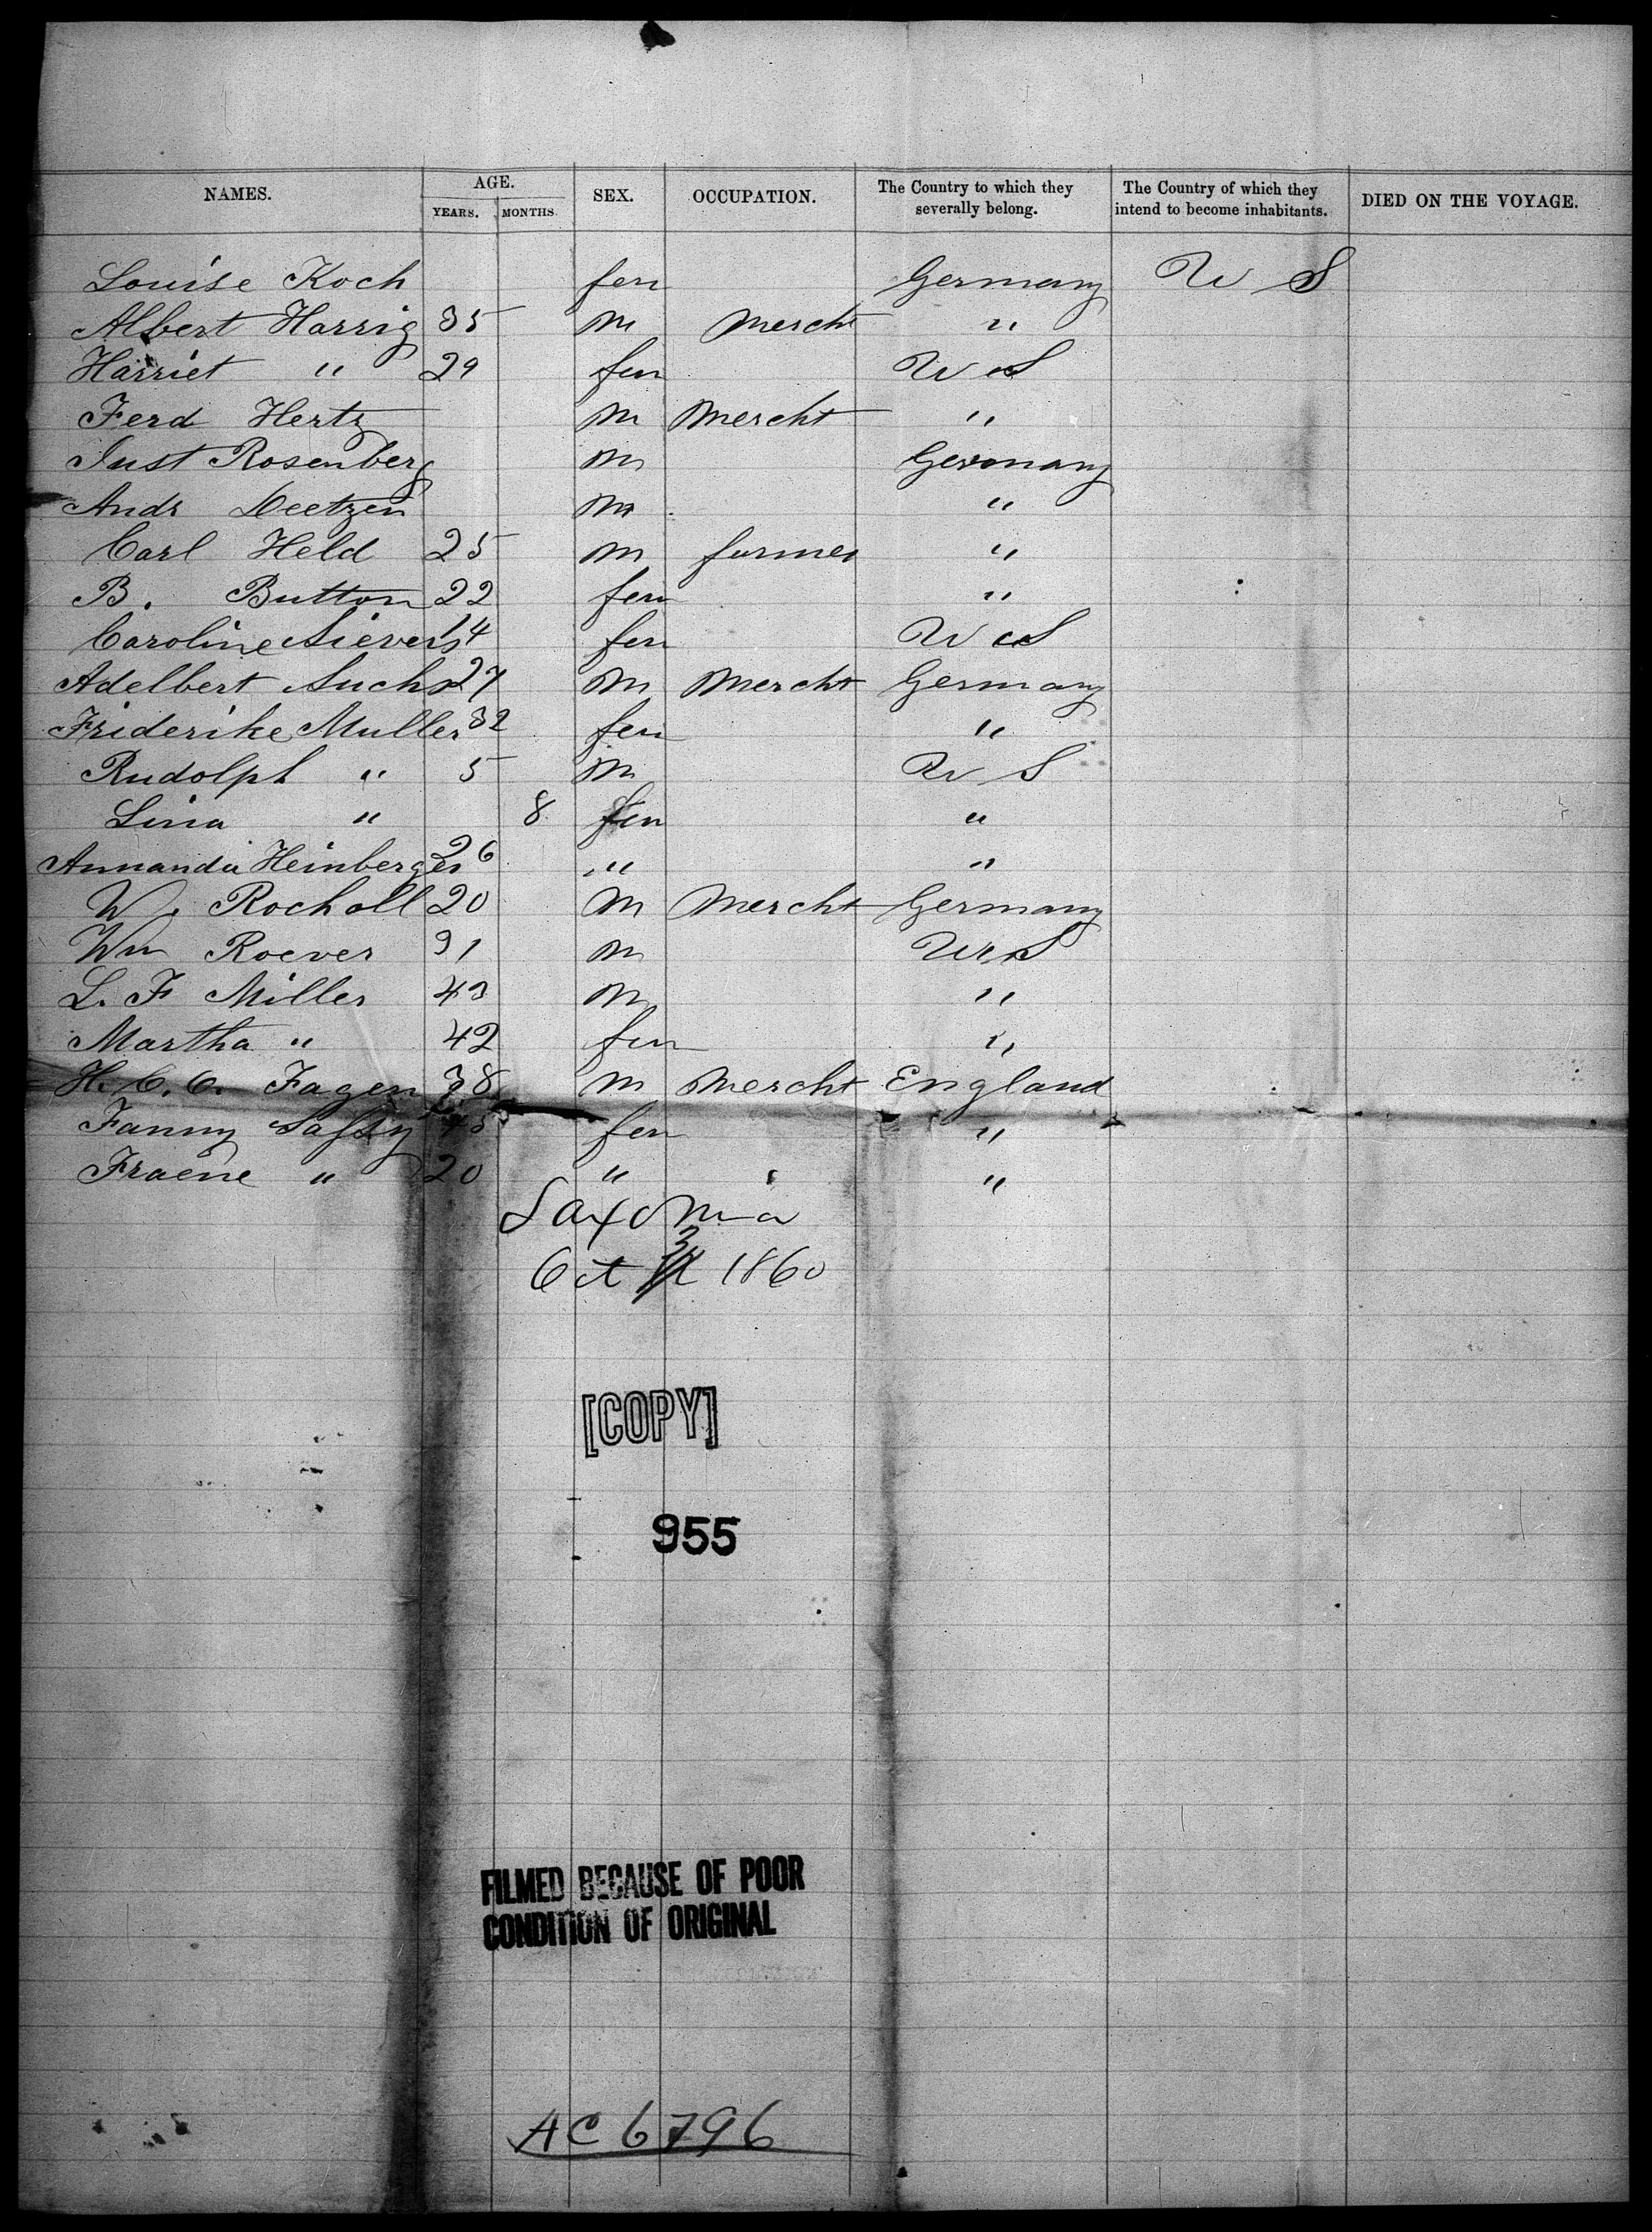 NAMES. AGE. SEX. OCCUPATION. The Country to which they severally belong. The Country of which they intend to become inhabitants. DIED ON THE VOYAGE.
YEARS. MONTHS
Louise Koch fem Germany U S
Albert Harrig 35 m Mercht "
Harriet " 29 fem U S
Ferd Hertz m Mercht "
Just Rosenberg m Germany
Andr Deetzen m "
Carl Held 25 m farmer "
B. Button 22 fem "
Caroline Sievers 14 fem U S
Adelbert Suchs 27 m Mercht Germany
Friderike Muller 32 fem "
Rudolph " 5 m U S
Lina " 8 fem "
Amanda Heinberger 26 " "
W. Rocholl 20 m Mercht Germany
Wm Roever 31 m U S
L. F Miller 43 m "
Martha " 42 fem "
H. C. C. Fagen 38 m Mercht England
Fanny 45 fem "
" 20 " "
Saxonia
Oct 3 1860
[COPY]
955
FILMED BECAUSE OF POOR
CONDITION OF ORIGINAL
AC 6796